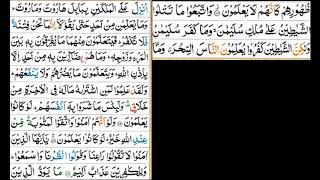 ظُهُورِهِمْ كَأَنَّهُمْ لَا يَعْلَمُونَ وَاتَّبَعُوا مَا تَتْلُوا
الشَّيٰطِينُ عَلَىٰ مُلْكِ سُلَيْمٰنَ وَمَا كَفَرَ سُلَيْمٰنُ
وَلٰكِنَّ الشَّيٰطِينَ كَفَرُوا يُعَلِّمُونَ النَّاسَ السِّحْرَ وَمَا
أُنْزِلَ عَلَى الْمَلَكَيْنِ بِبَابِلَ هَارُوتَ وَمَارُوتَ
وَمَا يُعَلِّمَانِ مِنْ أَحَدٍ حَتَّىٰ يَقُولَا إِنَّمَا نَحْنُ فِتْنَةٌ
فَلَا تَكْفُرْ فَيَتَعَلَّمُونَ مِنْهُمَا مَا يُفَرِّقُونَ بِهِ بَيْنَ
الْمَرْءِ وَزَوْجِهِ وَمَا هُمْ بِضَارِّينَ بِهِ مِنْ أَحَدٍ إِلَّا
بِإِذْنِ اللهِ وَيَتَعَلَّمُونَ مَا يَضُرُّهُمْ وَلَا يَنْفَعُهُمْ
وَلَقَدْ عَلِمُوا لَمَنِ اشْتَرٰىهُ مَا لَهُ فِي الْآخِرَةِ مِنْ
خَلَاقٍ وَلَبِئْسَ مَا شَرَوْا بِهِ أَنْفُسَهُمْ لَوْ كَانُوا
يَعْلَمُونَ وَلَوْ أَنَّهُمْ آمَنُوا وَاتَّقَوْا لَمَثُوبَةٌ مِنْ
عِنْدِ اللهِ خَيْرٌ لَوْ كَانُوا يَعْلَمُونَ يٰأَيُّهَا الَّذِينَ
آمَنُوا لَا تَقُولُوا رَاعِنَا وَقُولُوا انْظُرْنَا وَاسْمَعُوا
وَلِلْكَافِرِينَ عَذَابٌ أَلِيمٌ مَا يَوَدُّ الَّذِينَ